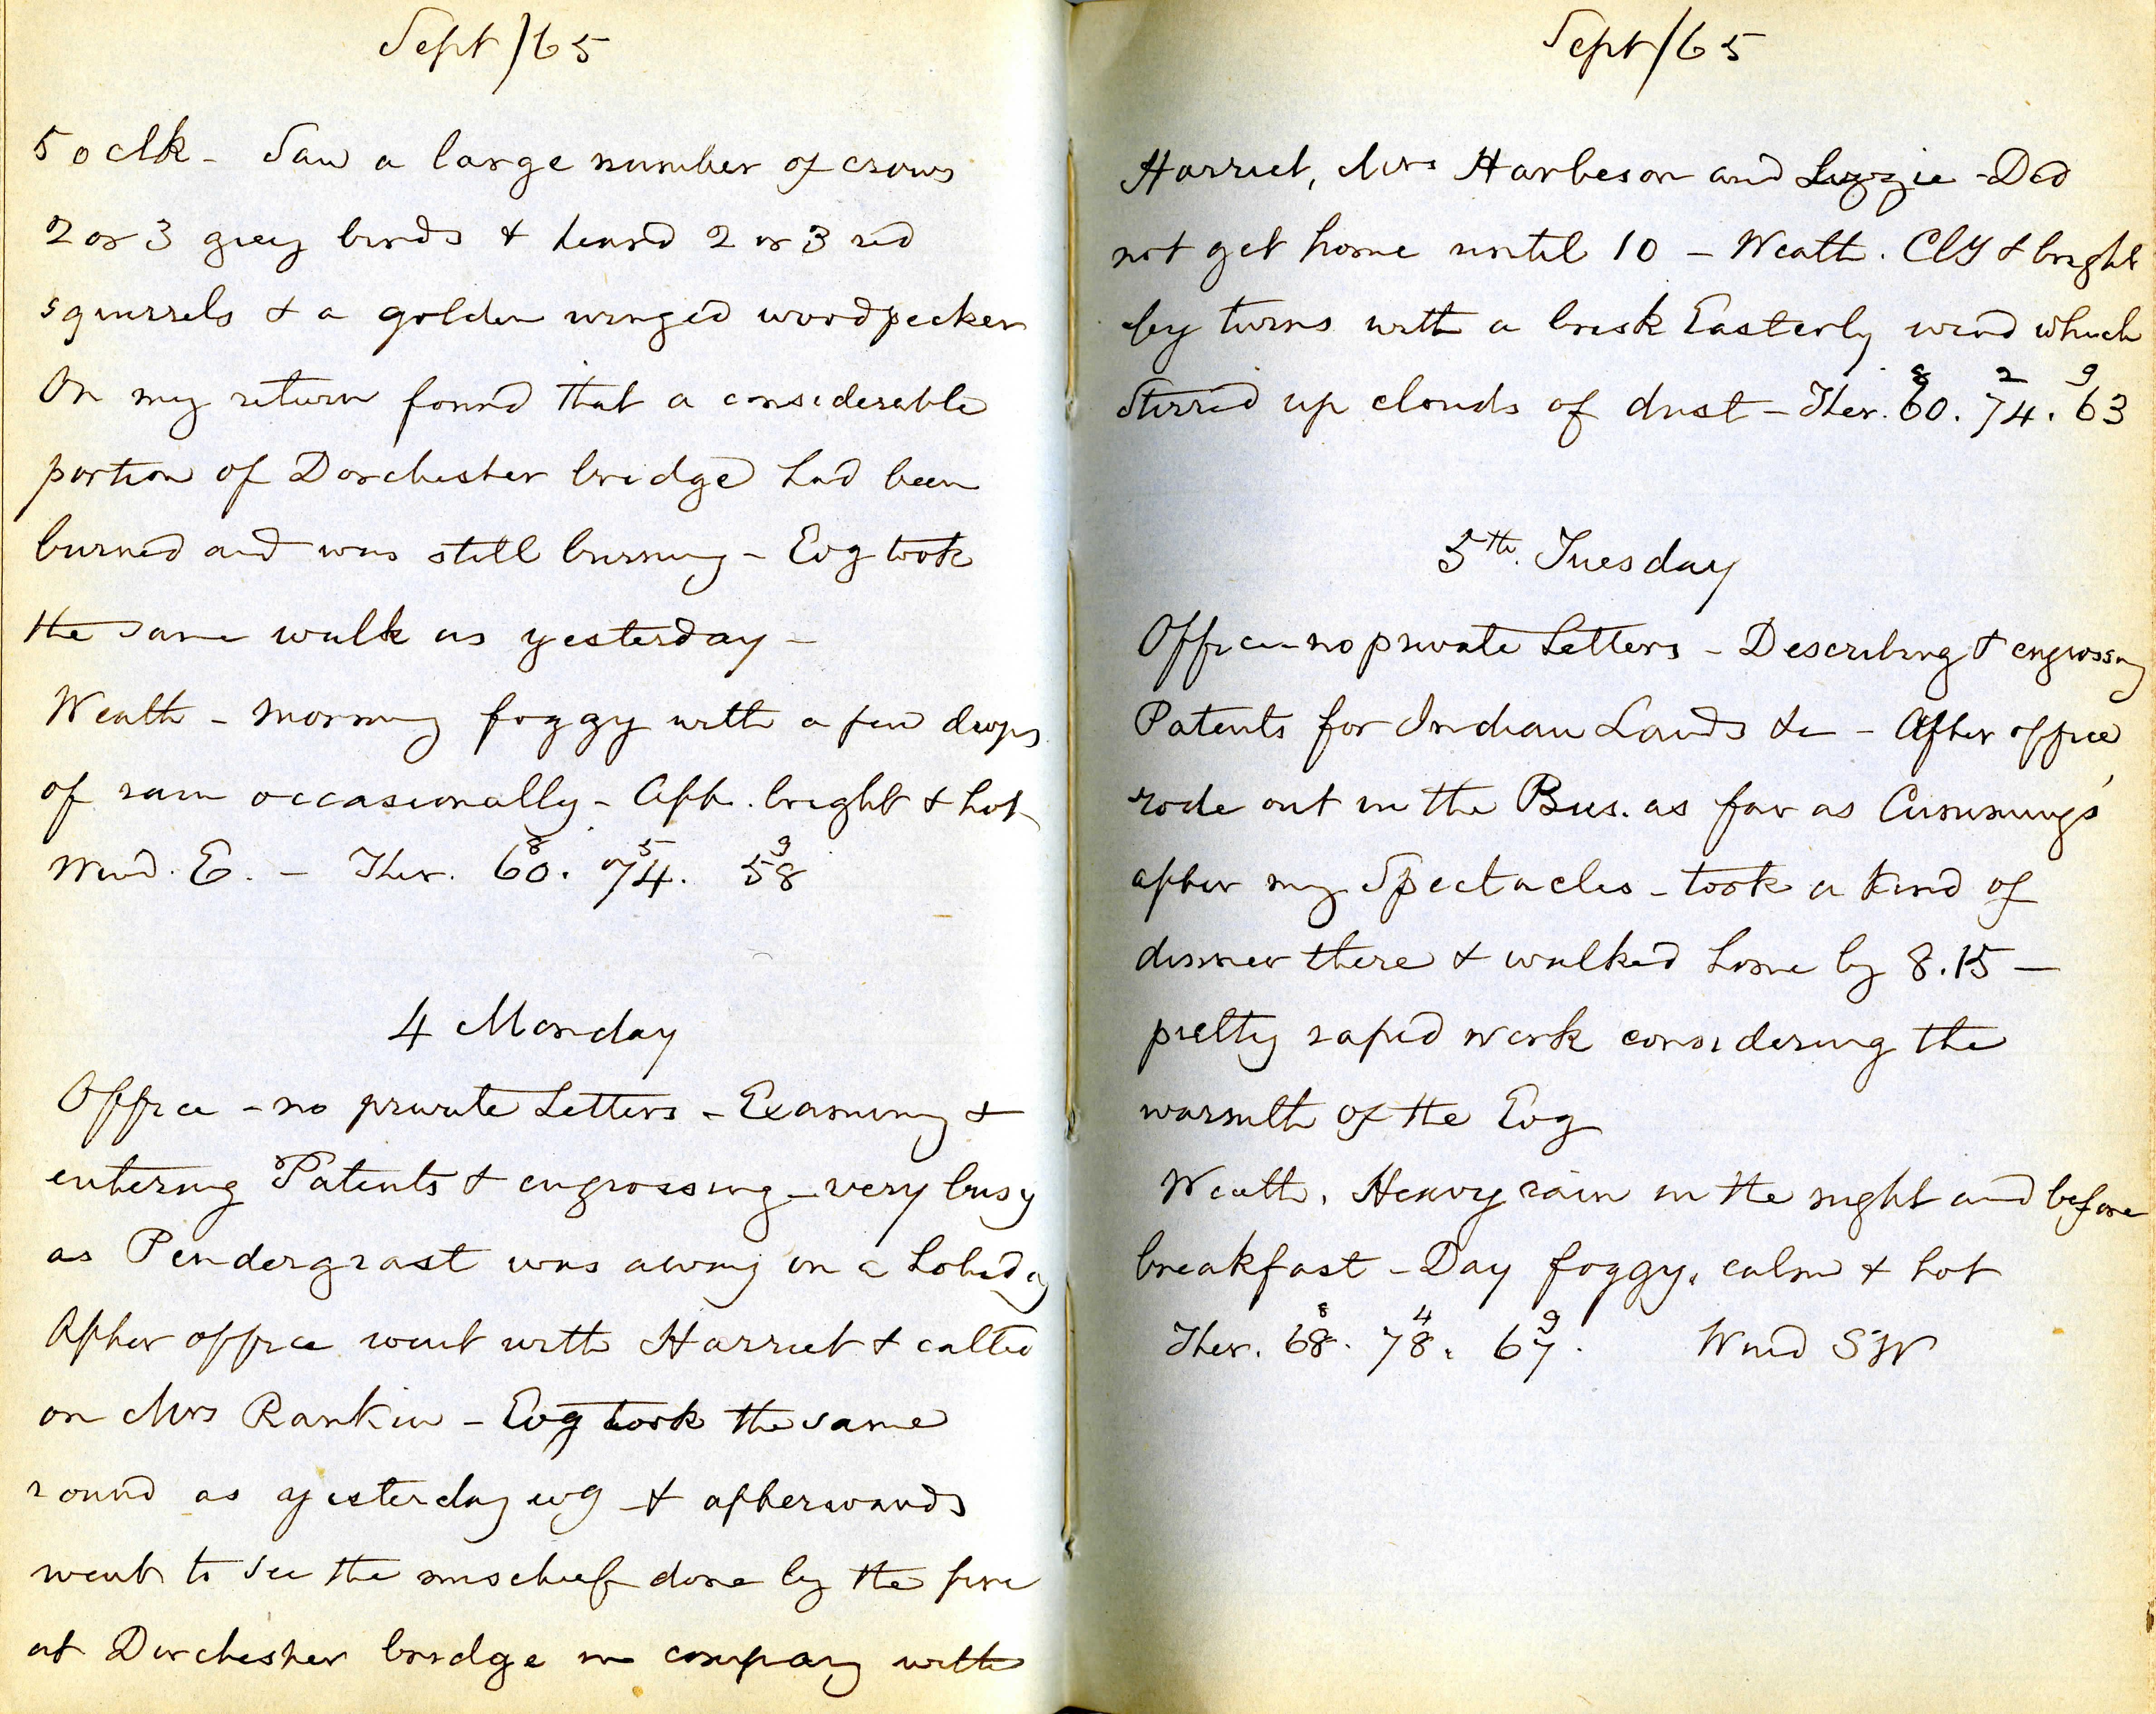 Sept/65
5 oclk - Saw a large number of crows
2 or 3 grey birds & heard 2 or 3 red
squirrels & a golden winged woodpecker
On my return found that a considerable
portion of Dorchester bridge had been
burned and was still burning - Evg took
the same walk as yesterday -
Weath - morning foggy with a few drops
of rain occasionally - Aft. bright & hot
Wind. E. - Ther. 60.⁸ 74.⁵ 58⁹
4 Monday
Office - no private Letters - Examining &
entering Patents & engrossing - very busy
as Pendergrast was away on a holiday
After office went with Harriet & called
on Mrs Rankin - Evg took the same
round as yesterday evg & afterwards
went to see the mischief done by the fire
at Dorchester bridge in company with
Sept/65
Harriet, Mrs Harbeson and Lizzie - Did
not get home until 10 - Weath. Cly & bright
by turns with a brisk Easterly wind which
Stirred up clouds of dust - Ther. 60.⁸ 74.² 63⁹
5th. Tuesday
Office - no private Letters - Describing & engrossing
Patents for Indian Lands &c - After office
rode out in the Bus. as far as Cummings'
after my Spectacles - took a kind of
dinner there & walked home by 8.15 -
pretty rapid work considering the
warmth of the Evg
Weath. Heavy rain in the night and before
breakfast - Day foggy, calm & hot
Ther. 68.⁸ 78.⁴ 67.⁹ Wind SW